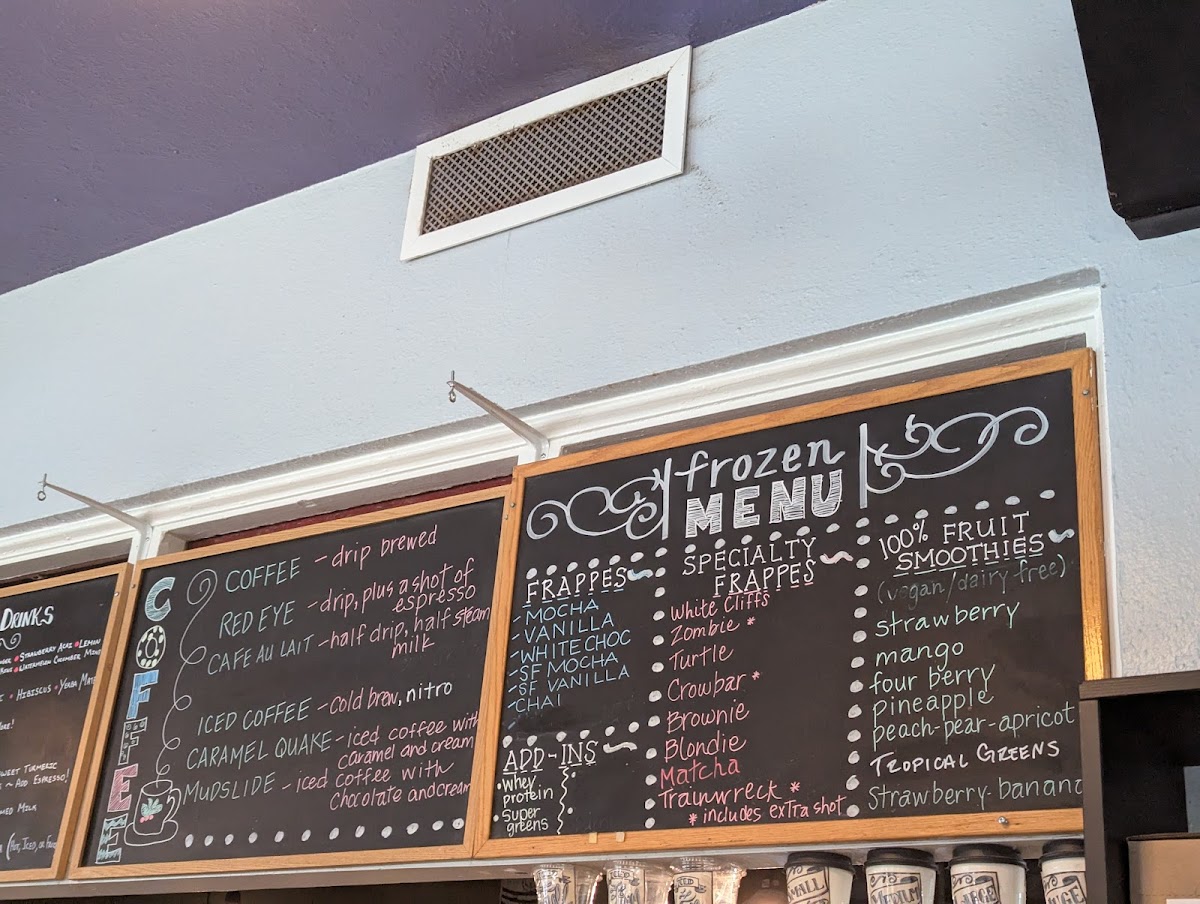 DRINKS
STRAWBERRY ACAI • LEMON
WATERMELON CUCUMBER MINT
• HIBISCUS • YERBA MATE
SWEET TURMERIC
~ ADD ESPRESSO!
MILK
COFFEE
COFFEE - drip brewed
RED EYE - drip, plus a shot of
espresso
CAFE AU LAIT - half drip, half steam
milk
ICED COFFEE - cold brew, nitro
CARAMEL QUAKE - iced coffee with
caramel and cream
MUDSLIDE - iced coffee with
chocolate and cream
frozen
MENU
FRAPPES
- MOCHA
- VANILLA
- WHITE CHOC
- SF MOCHA
- SF VANILLA
- CHAI
ADD-INS
• whey
protein
• super
greens
SPECIALTY
FRAPPES
White Cliffs
Zombie *
Turtle
Crowbar *
Brownie
Blondie
Matcha
Trainwreck *
* includes extra shot
100% FRUIT
SMOOTHIES
(vegan/dairy free)
strawberry
mango
four berry
pineapple
peach-pear-apricot
TROPICAL GREENS
Strawberry-banana
SMALL
MEDIUM
LARGE